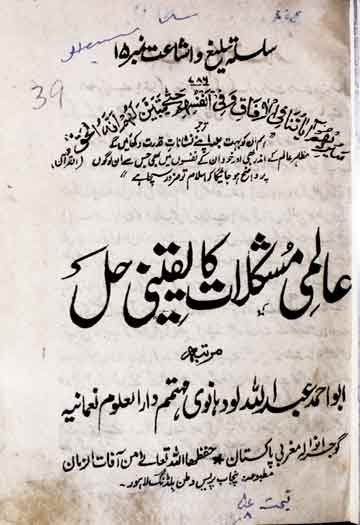 سلسلۂ تبلیغ و اشاعت نمبر ۱۵
۷۸۶
سنریھم آیاتنا فی الآفاق و فی انفسھم حتی یتبین لھم انہ الحق
ہم ان کو بہت جلد اپنے نشانات قدرت دکھائیں گے
مظاہر عالم کے اندر بھی اور خود ان کے نفسوں میں بھی جس سے ان لوگوں (القرآن)
پر واضح ہو جائیگا کہ اسلام ضرور سچا ہے
39
عالمی مشکلات کا یقینی حل
مرتبہ
ابو احمد عبداللہ لودہانوی مہتمم دارالعلوم نعمانیہ
گوجرانوالہ مغربی پاکستان * حفظہا اللہ تعالےٰ من آفات الزمان
مطبوعہ پنجاب پریس وطن بلڈنگ لاہور۔
قیمت
۸